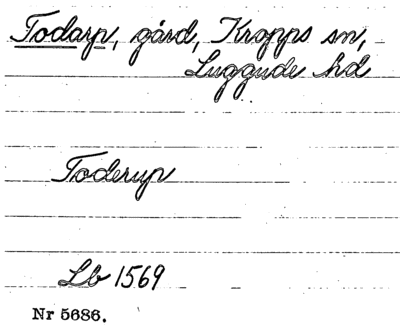 Todarp, gård, Kropps sn,
Luggude hd
Toderup
Lb 1569
Nr 5686.